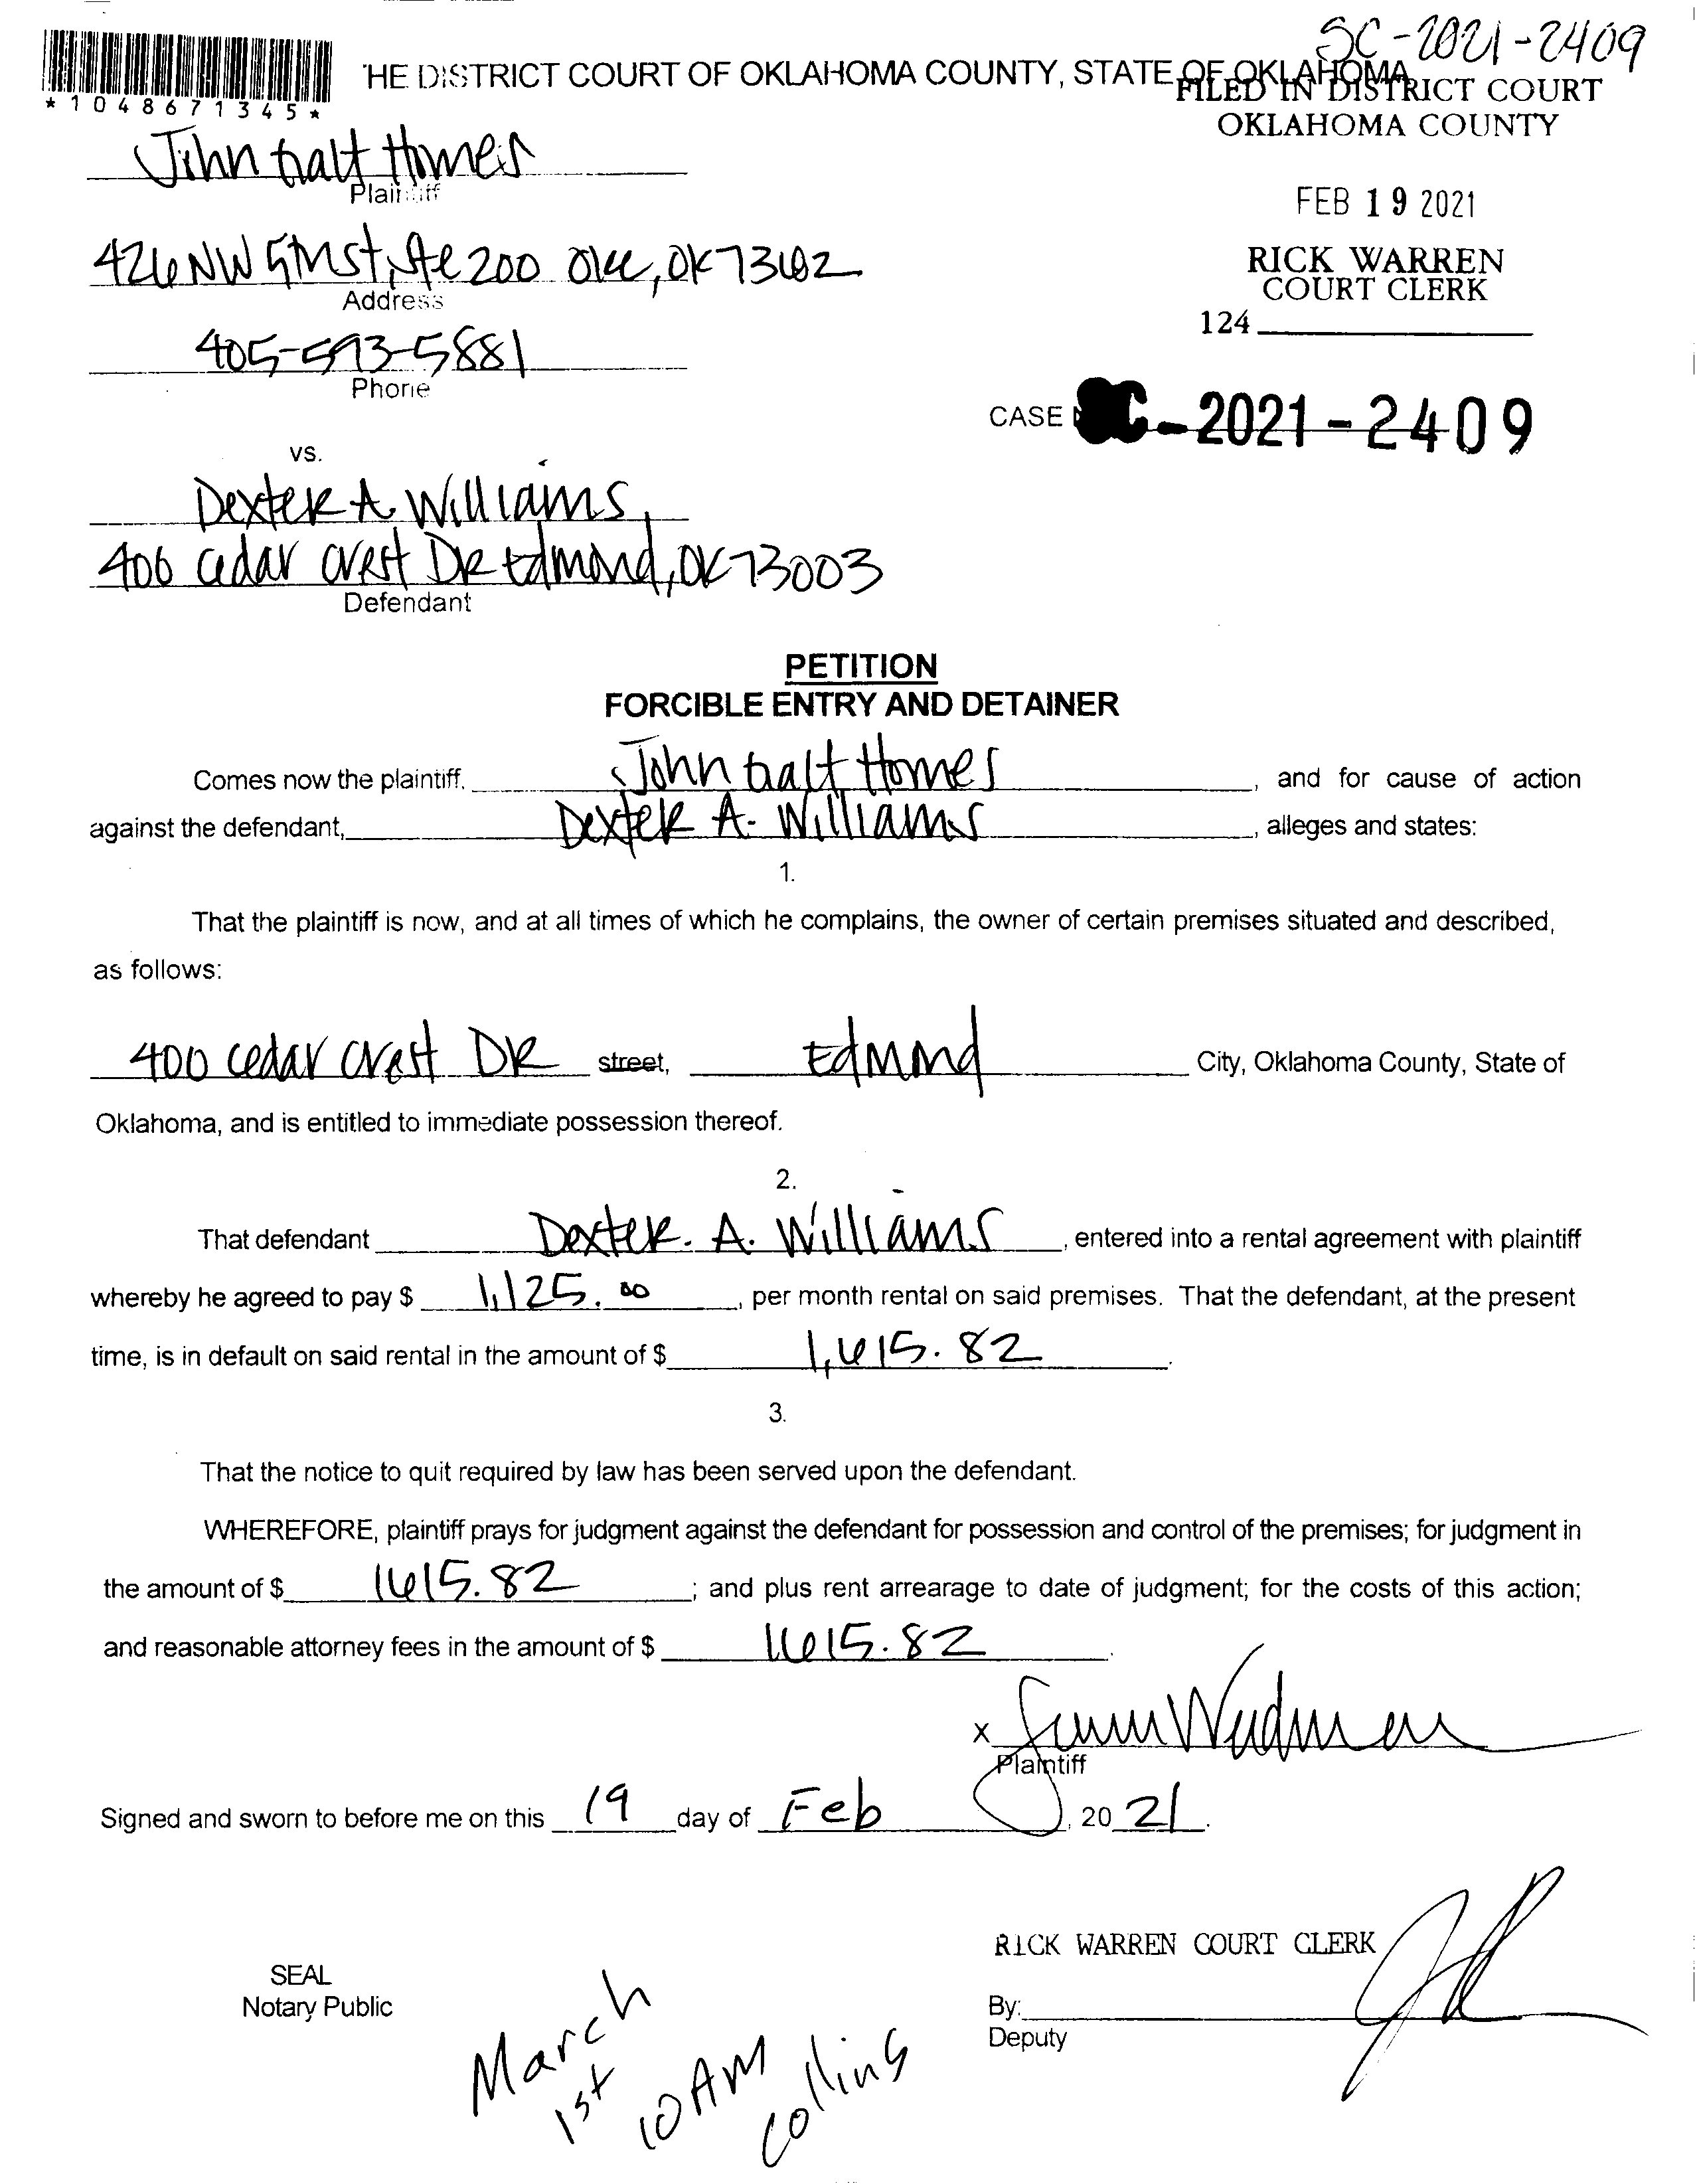 SC-2021-2409
*1048671345*
THE DISTRICT COURT OF OKLAHOMA COUNTY, STATE OF OKLAHOMA
FILED IN DISTRICT COURT
OKLAHOMA COUNTY
John Galt Homes
Plaintiff
FEB 19 2021
426 NW 5th St, Ste 200 OKC, OK 73102
Address
RICK WARREN
COURT CLERK
124
405-593-5881
Phone
CASE SC-2021-2409
vs.
Dexter A Williams
406 Cedar Crest DR Edmond, OK 73003
Defendant
PETITION
FORCIBLE ENTRY AND DETAINER
Comes now the plaintiff, John Galt Homes, and for cause of action
against the defendant, Dexter A. Williams, alleges and states:
1.
That the plaintiff is now, and at all times of which he complains, the owner of certain premises situated and described,
as follows:
406 Cedar Crest DR street, Edmond City, Oklahoma County, State of
Oklahoma, and is entitled to immediate possession thereof.
2.
That defendant Dexter. A. Williams, entered into a rental agreement with plaintiff
whereby he agreed to pay $ 1,125.00, per month rental on said premises. That the defendant, at the present
time, is in default on said rental in the amount of $ 1,615.82.
3.
That the notice to quit required by law has been served upon the defendant.
WHEREFORE, plaintiff prays for judgment against the defendant for possession and control of the premises; for judgment in
the amount of $ 1615.82; and plus rent arrearage to date of judgment; for the costs of this action;
and reasonable attorney fees in the amount of $ 1615.82.
x
Plaintiff
Signed and sworn to before me on this 19 day of Feb, 2021.
RICK WARREN COURT CLERK
SEAL
Notary Public
By:
Deputy
March
1st
10 AM
Collins